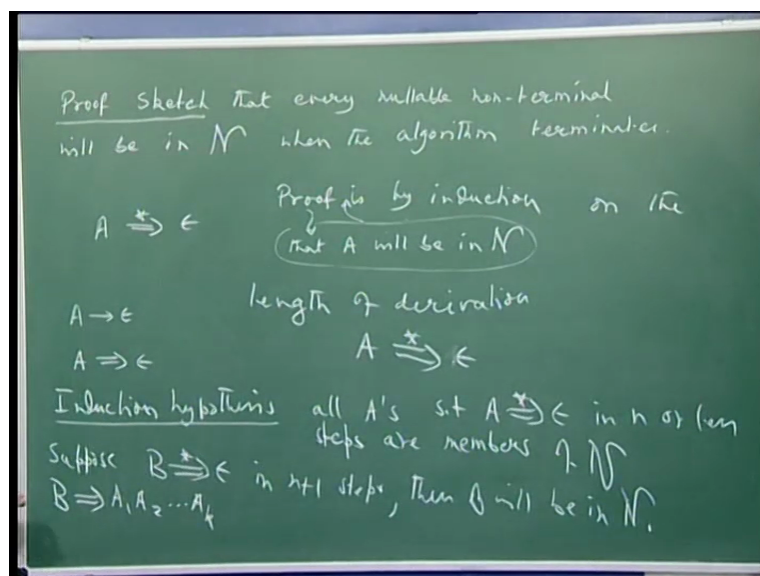 Proof sketch that every nullable non-terminal
will be in N when the algorithm terminates.
A ⇒* ϵ Proof is by induction on the
that A will be in N
length of derivation
A → ϵ
A ⇒ ϵ A ⇒* ϵ
Induction hypothesis all A's s.t A ⇒* ϵ in n or less
steps are members of N
Suppose B ⇒* ϵ in n+1 steps, then B will be in N.
B ⇒ A₁ A₂ ... Aₖ